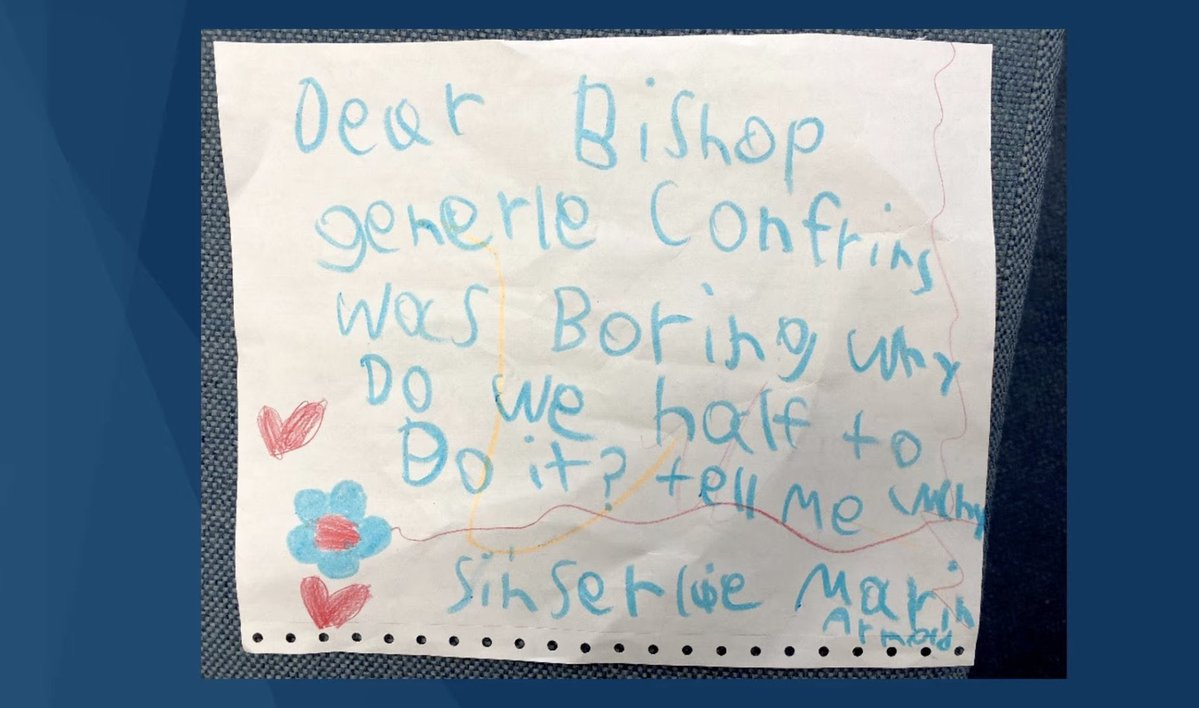 Dear Bishop
generle Confrins
was Boring why
Do we half to
Do it? tell me why
sinserlie Marin
Arnold